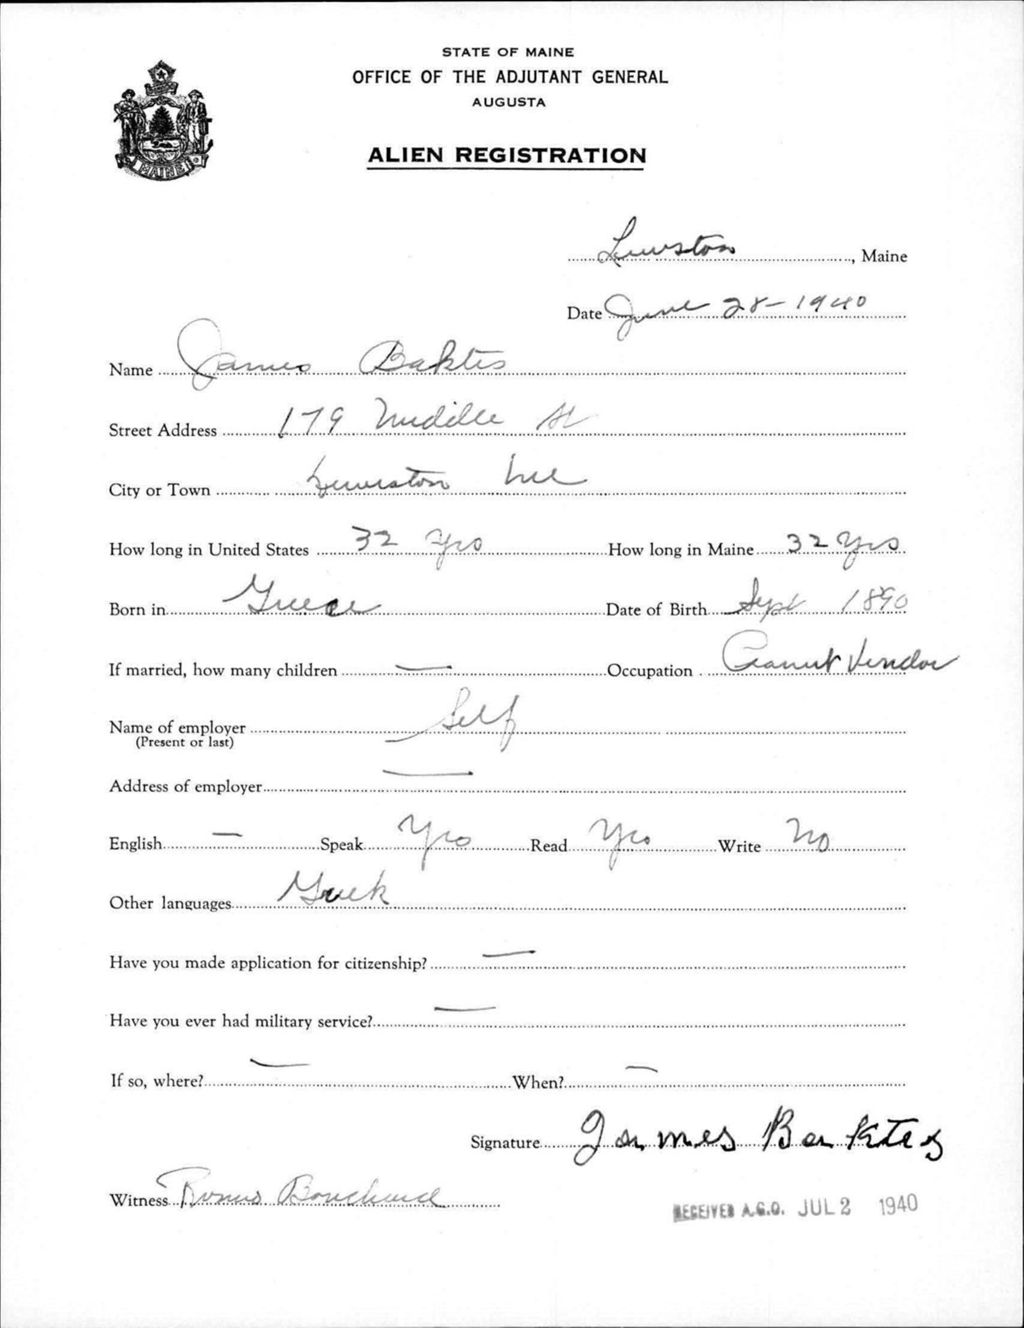 STATE OF MAINE
OFFICE OF THE ADJUTANT GENERAL
AUGUSTA
ALIEN REGISTRATION
MAINE
Lewiston, Maine
Date June 28-1940
Name James Baktis
Street Address 179 Middle St
City or Town Lewiston Me
How long in United States 32 Yrs How long in Maine 32 Yrs
Born in Greece Date of Birth Sept 1890
If married, how many children — Occupation Peanut Vendor
Name of employer Self
(Present or last)
Address of employer —
English — Speak Yes Read Yes Write No
Other languages Greek
Have you made application for citizenship? —
Have you ever had military service? —
If so, where? — When? —
Signature James Baktes
Witness Bouchard
RECEIVED A.G.O. JUL 2 1940